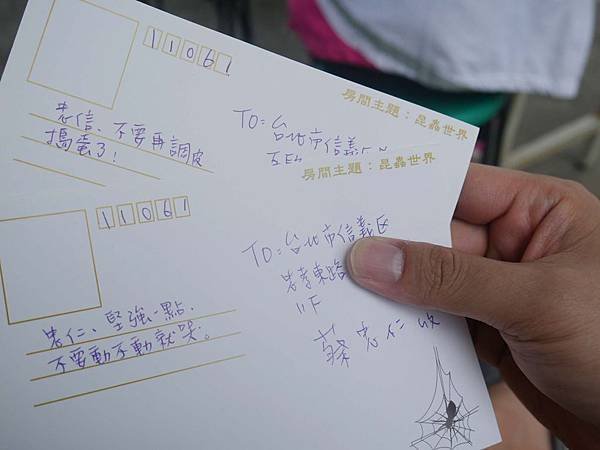 11061
房間主題：昆蟲世界
宏信、不要再調皮
搗蛋了！
TO：台
北市信義
房間主題：昆蟲世界
11061
TO：台北市信義區
忠孝東路
11F
蔡宏仁 收
宏仁、堅強一點、
不要動不動就哭。